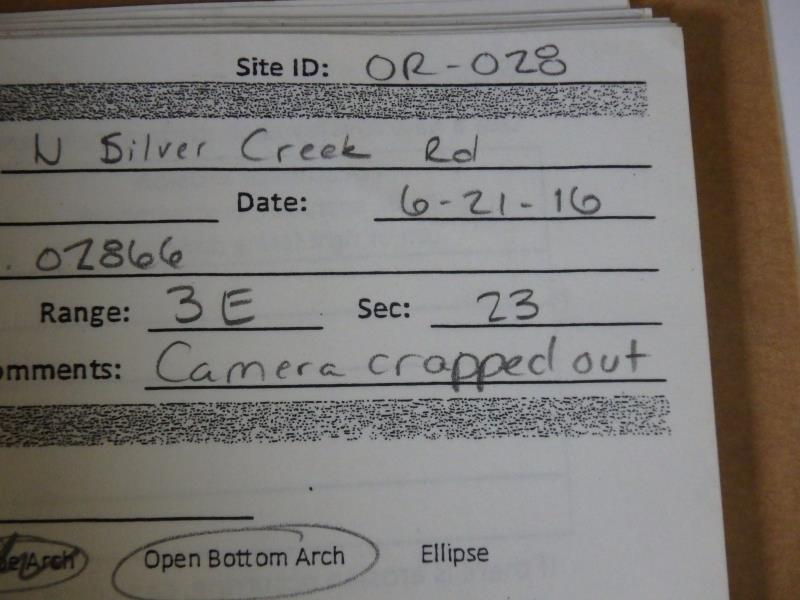 Site ID: OR-028
N Silver Creek Rd
Date: 6-21-16
. 02866
Range: 3E Sec: 23
omments: Camera crapped out
Arch Open Bottom Arch Ellipse